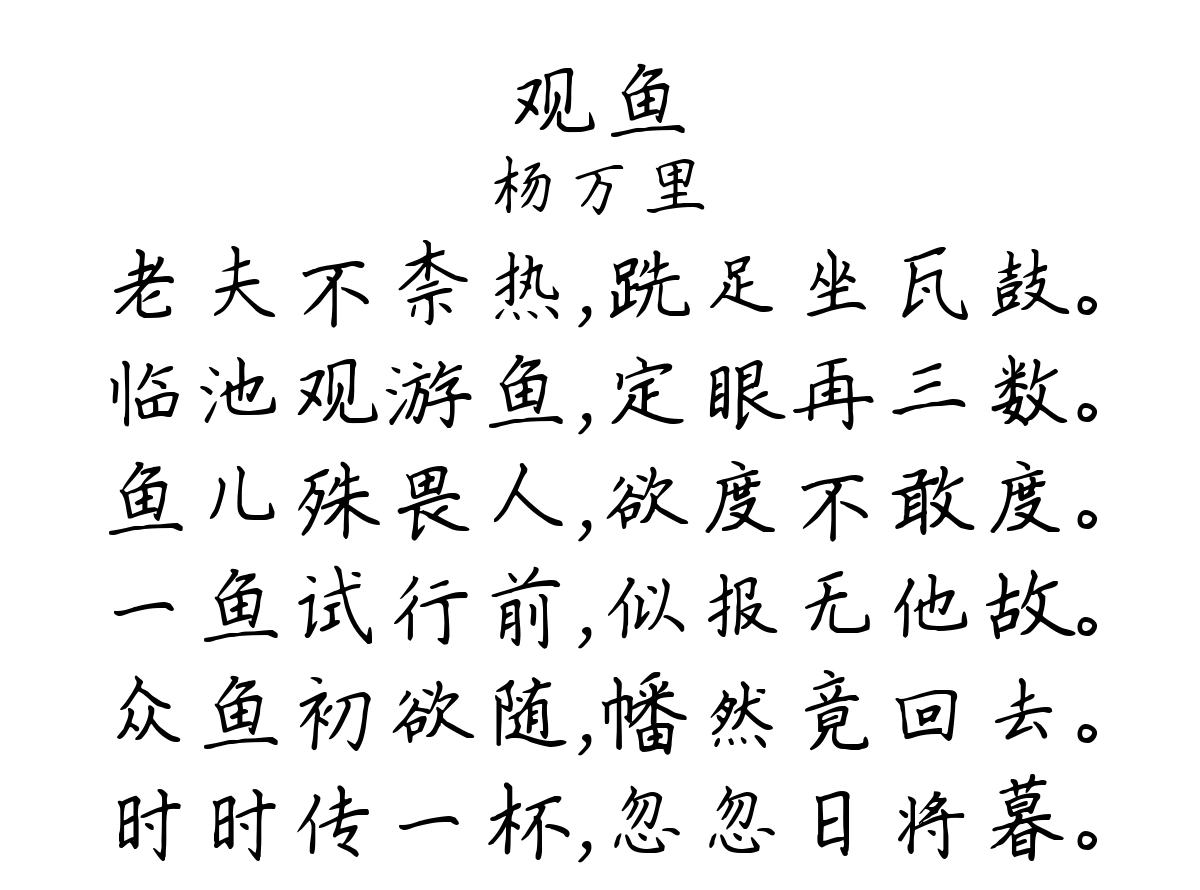 观鱼
杨万里
老夫不柰热,跣足坐瓦鼓。
临池观游鱼,定眼再三数。
鱼儿殊畏人,欲度不敢度。
一鱼试行前,似报无他故。
众鱼初欲随,幡然竟回去。
时时传一杯,忽忽日将暮。